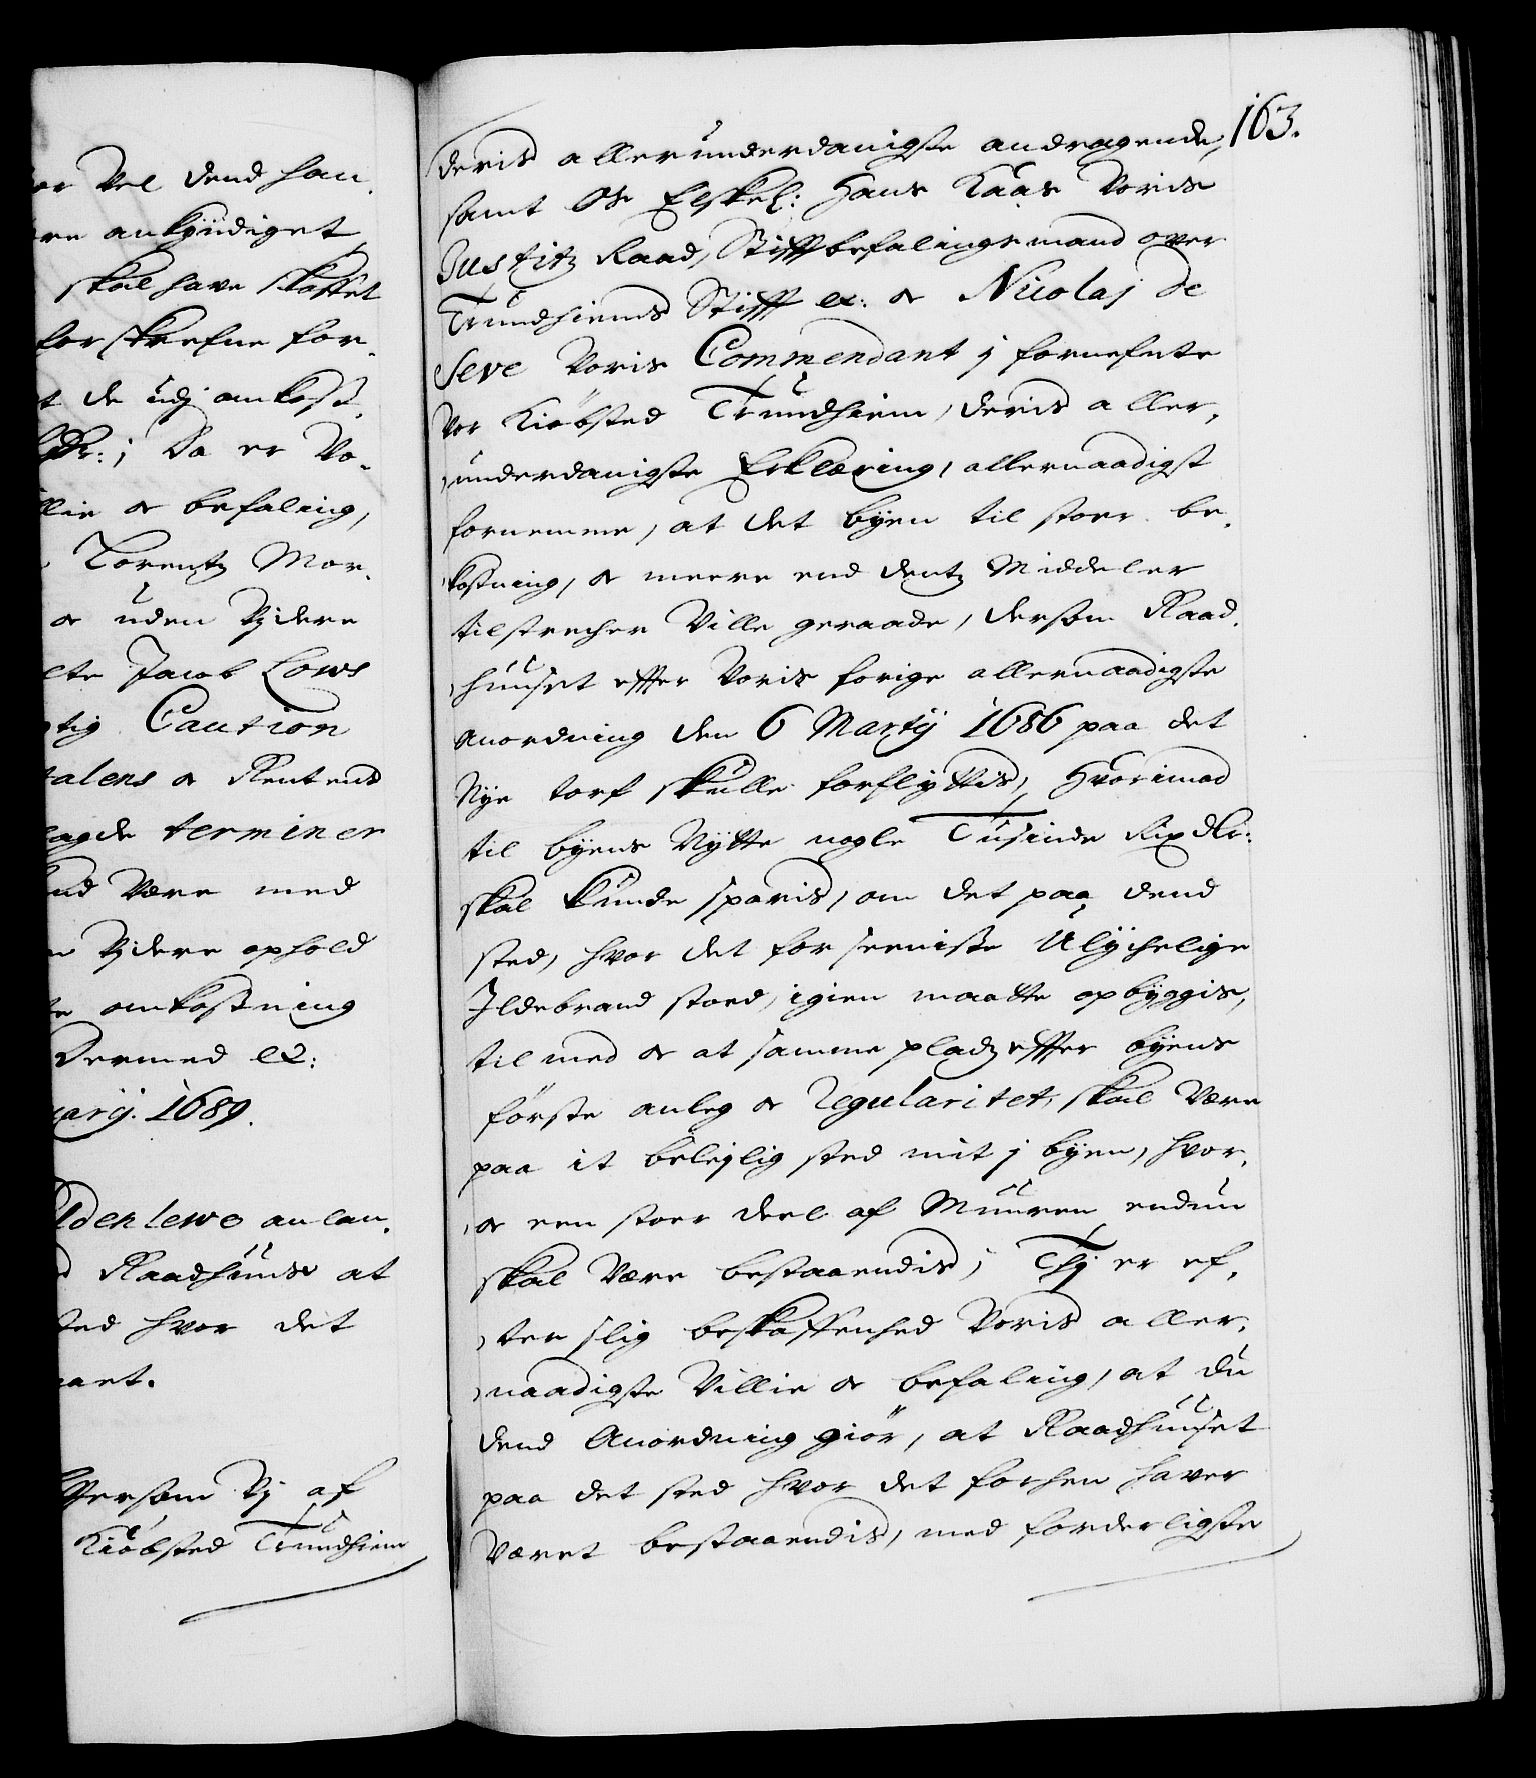 or Vel dend han¸
re ankyndiget
skal have skaffet
forskrefne for¸
t de udj omkost¸
Dr: ; Da er Vo¸
llie oc befaling,
Lorentz Mor¸
oc uden Videre
lte Jacob Lows
tig Caution
talens oc Rentens
lagde terminer
nd Være med
n Videre ophold
te omkostning
Dermed etc:
uarij. 1689.
Gÿldenlewe anlan¸
d Raadhuuse at
ted hvor det
aaet.
Eftersom Vj af
Kiøbsted Trundhiem
163.
Deris allerunderdanigste andragende,
samt Os Elskel: Hans Kaas Voris
Justitz Raad, Stifftbefalingsmand over
Trundhiems Stifft etc: oc Nicolaj de
Seve Voris Commendant j fornefnte
Vor Kiøbsted Trundhiem, deris aller¸
underdanigste Erklæring, allernaadigst
fornemme, at det byen til stoer be¸
kostning, oc meere end dentz Middeler
tilstrecher Ville geraade, dersom Raad¸
huuset effter Voris forige allernaadigste
Anordning den 6 Martij 1686 paa det
Nye torf skulle forflyttis, Hvorimod
til byens Nytte nogle Tusinde Rixdlr:
skal kunde sparis, om det paa dend
sted, hvor det for seeniste Ulychelige
Ildebrand stoed, igien maatte opbyggis,
til med oc at samme pladtz effter byens
første anleg oc Regularitet, skal Være
paa it belejlig sted mit j byen, hvor¸
oc een stoer deel af Muuren endnu
skal Være bestaaendis; Thj er ef¸
ter slig beskaffenhed Voris aller¸
naadigste Villie oc befaling, at du
dend Anordning giør, at Raadhuuset
paa det sted hvor det forhen haver
Været bestaaendis, med forderligste